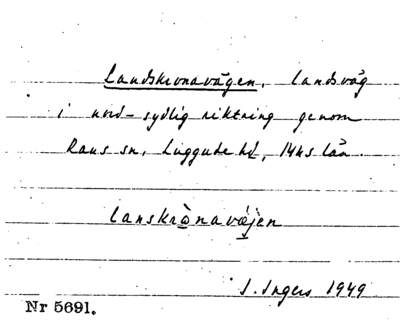 Landskronavägen, landsväg
i nord-sydlig riktning genom
Raus sn, Luggude hd, Mhs län.
lanskrònavæjen
I. Ingers 1949
Nr 5691.